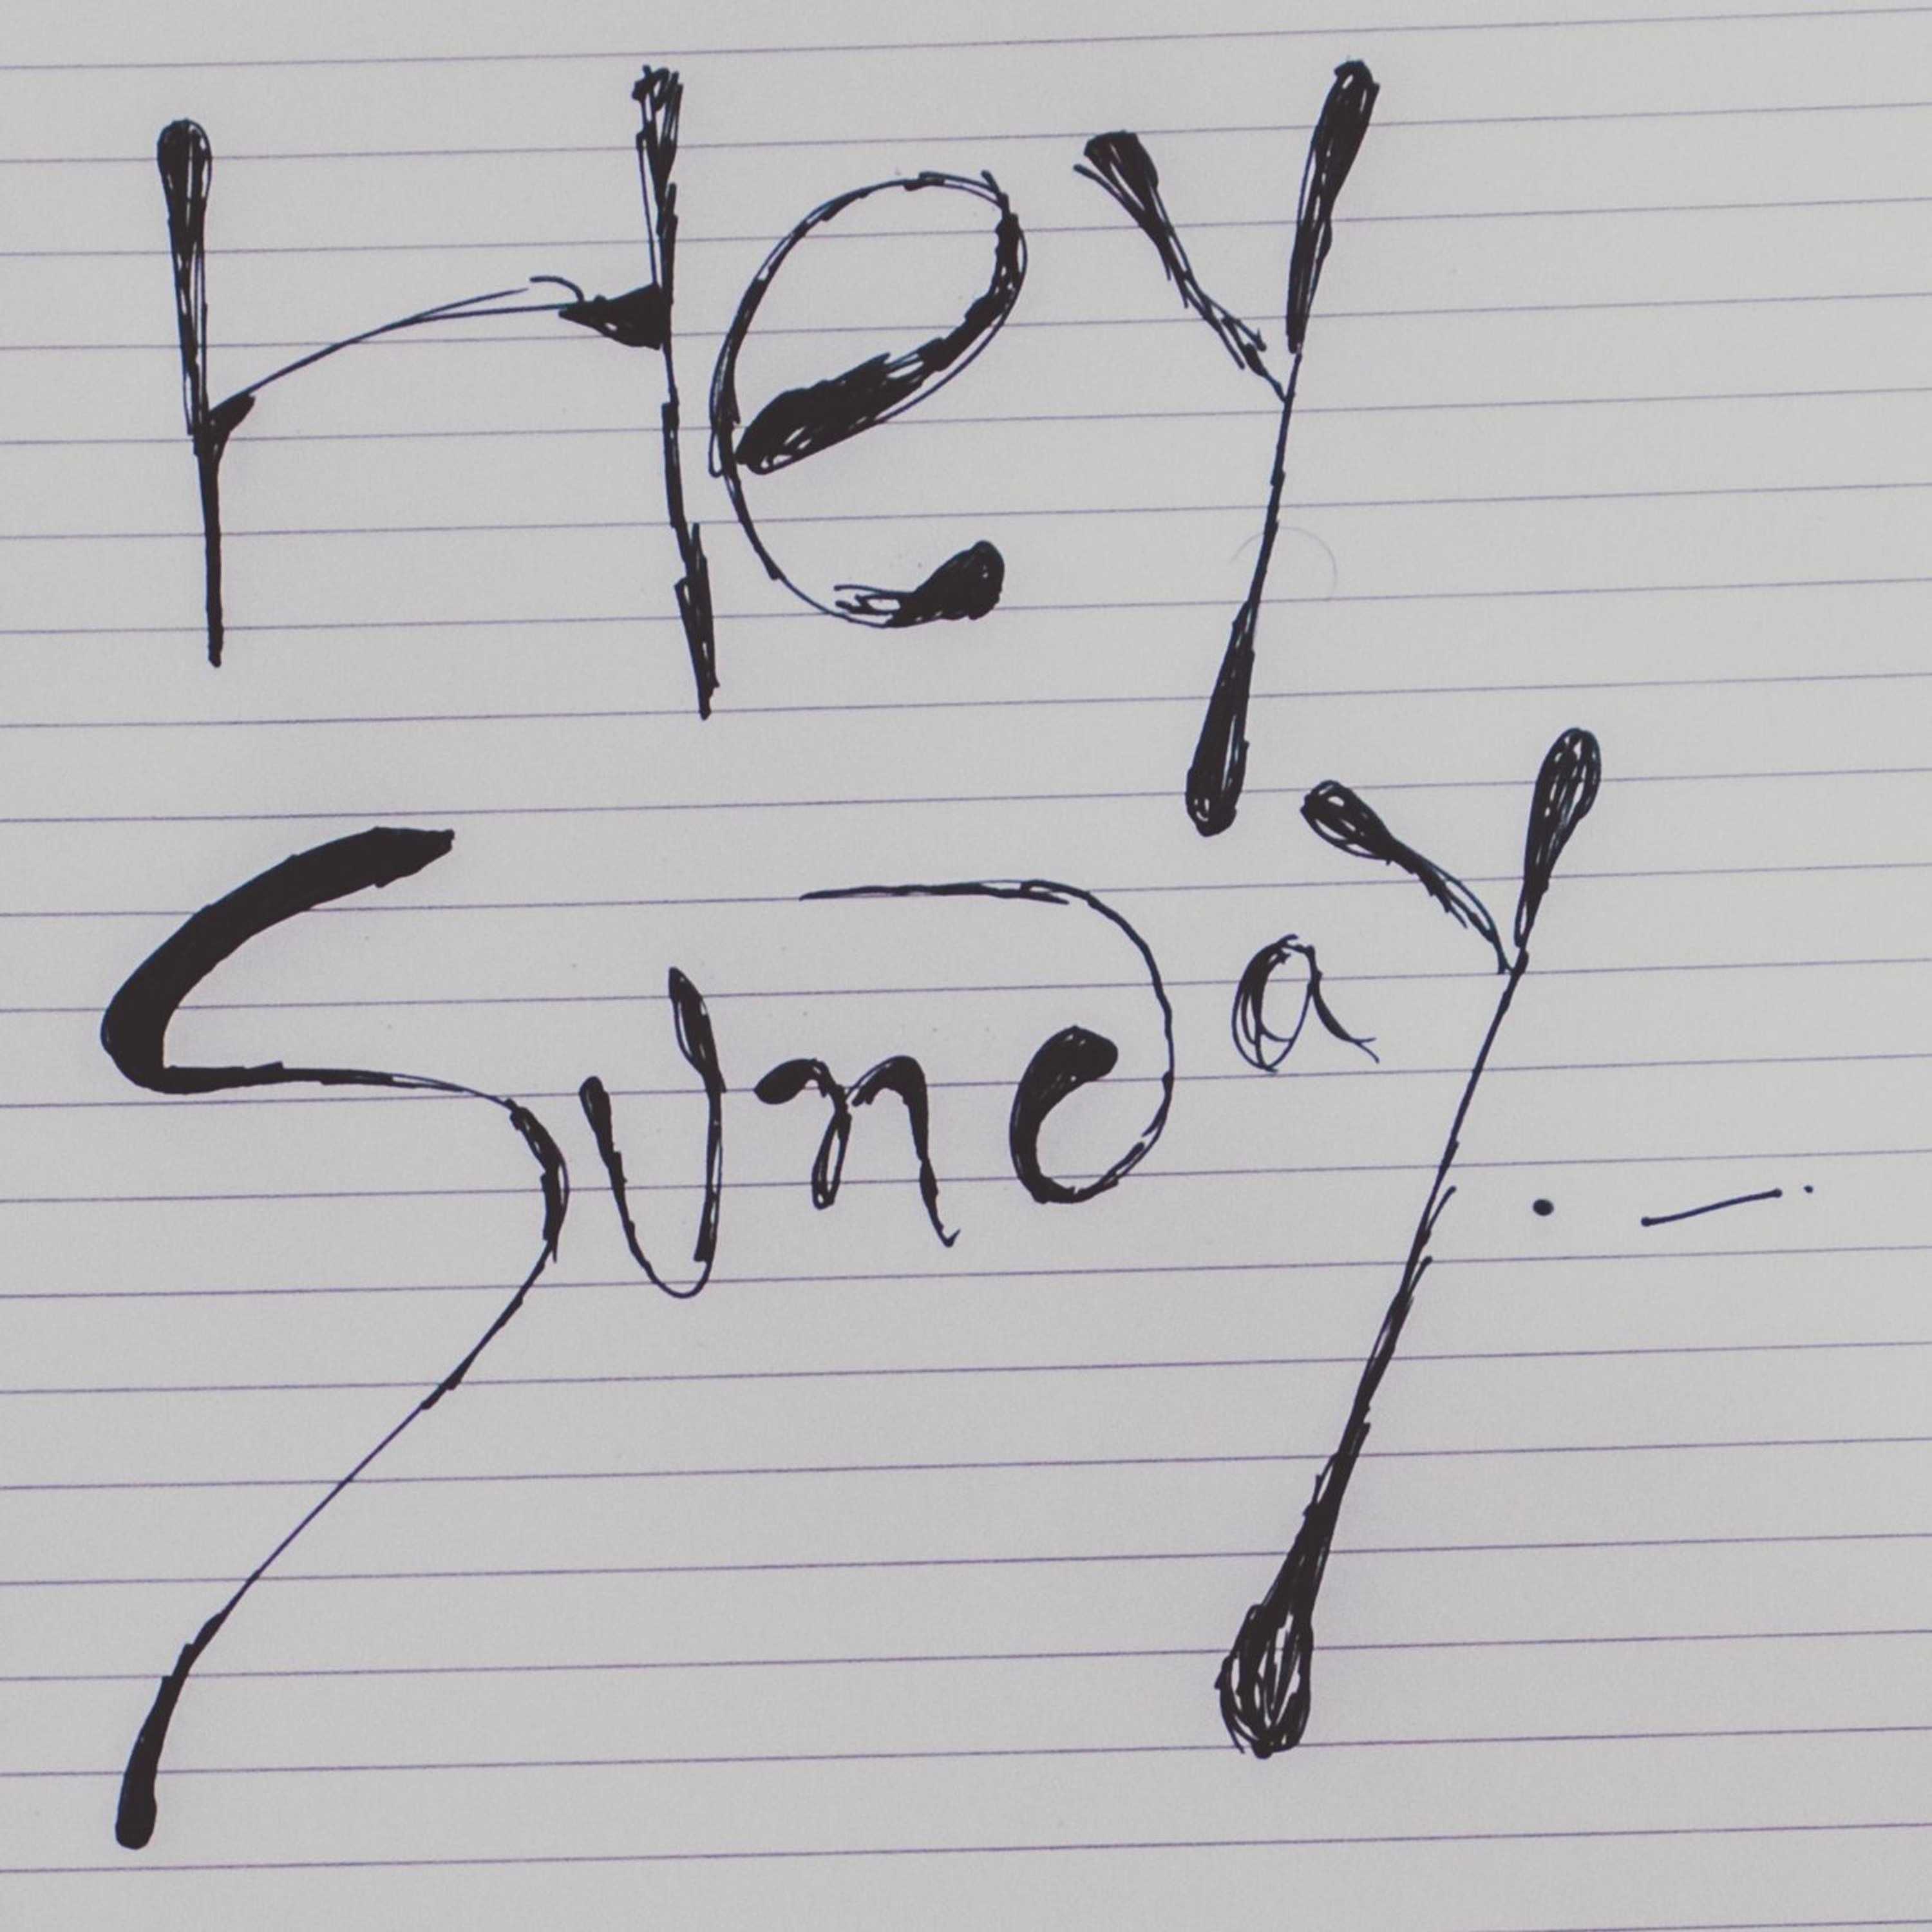 Hey
Sunday . — .